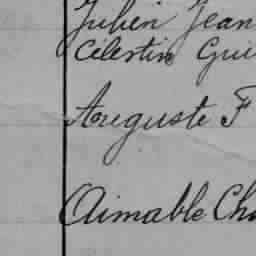 Julien Jean
Célestin Gui
Auguste F
Aimable Cha